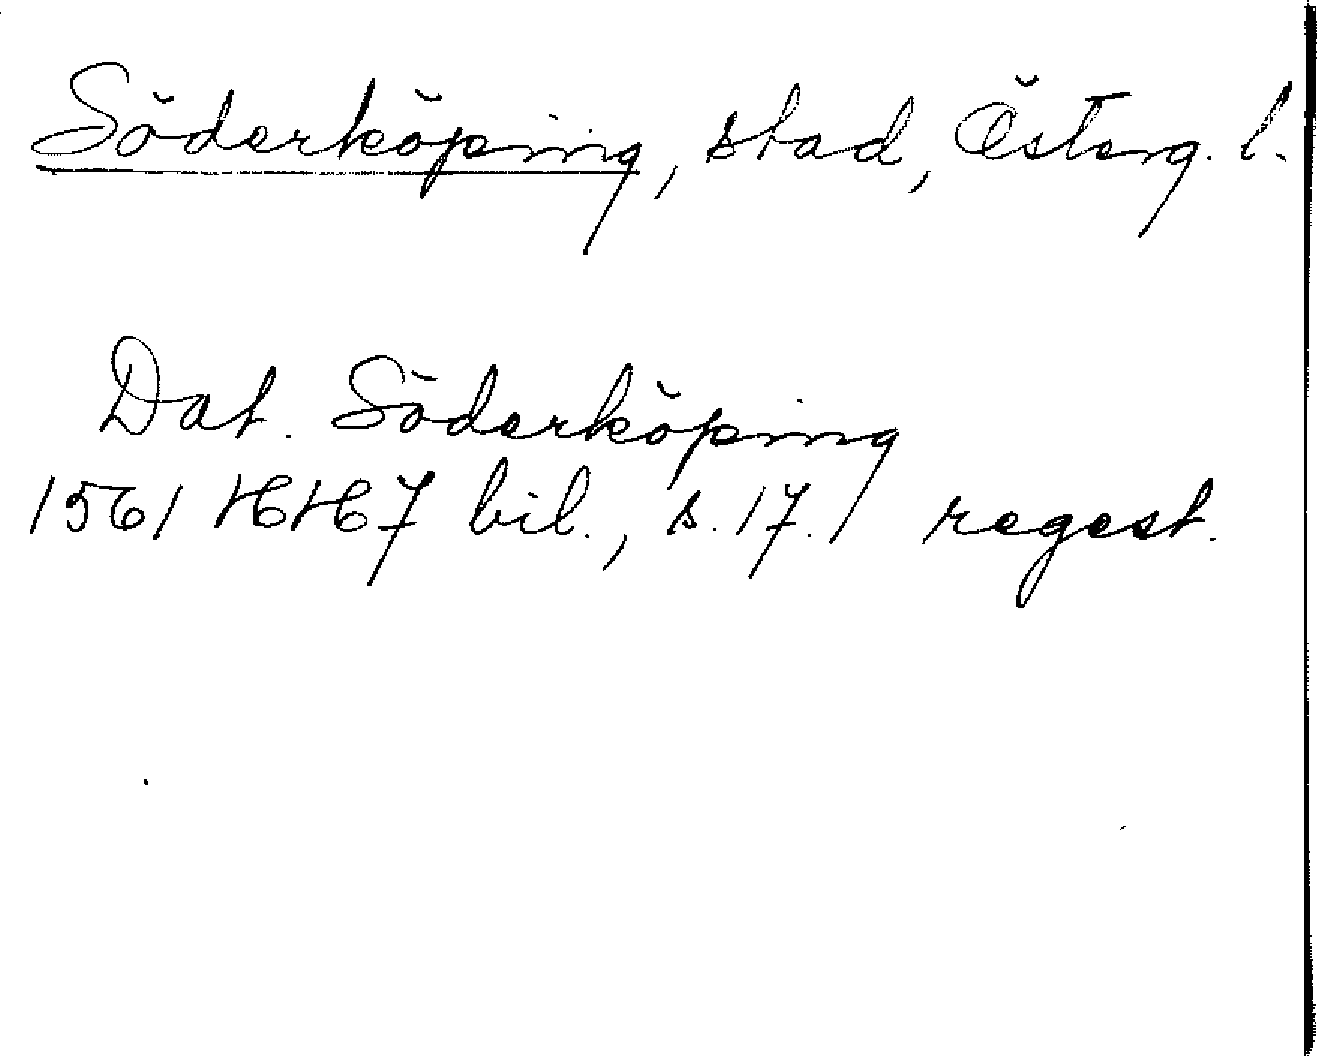 Söderköping, stad, Österg. l.
Dat. Söderköping
1561 HH 7 bil., s. 17. / regest.